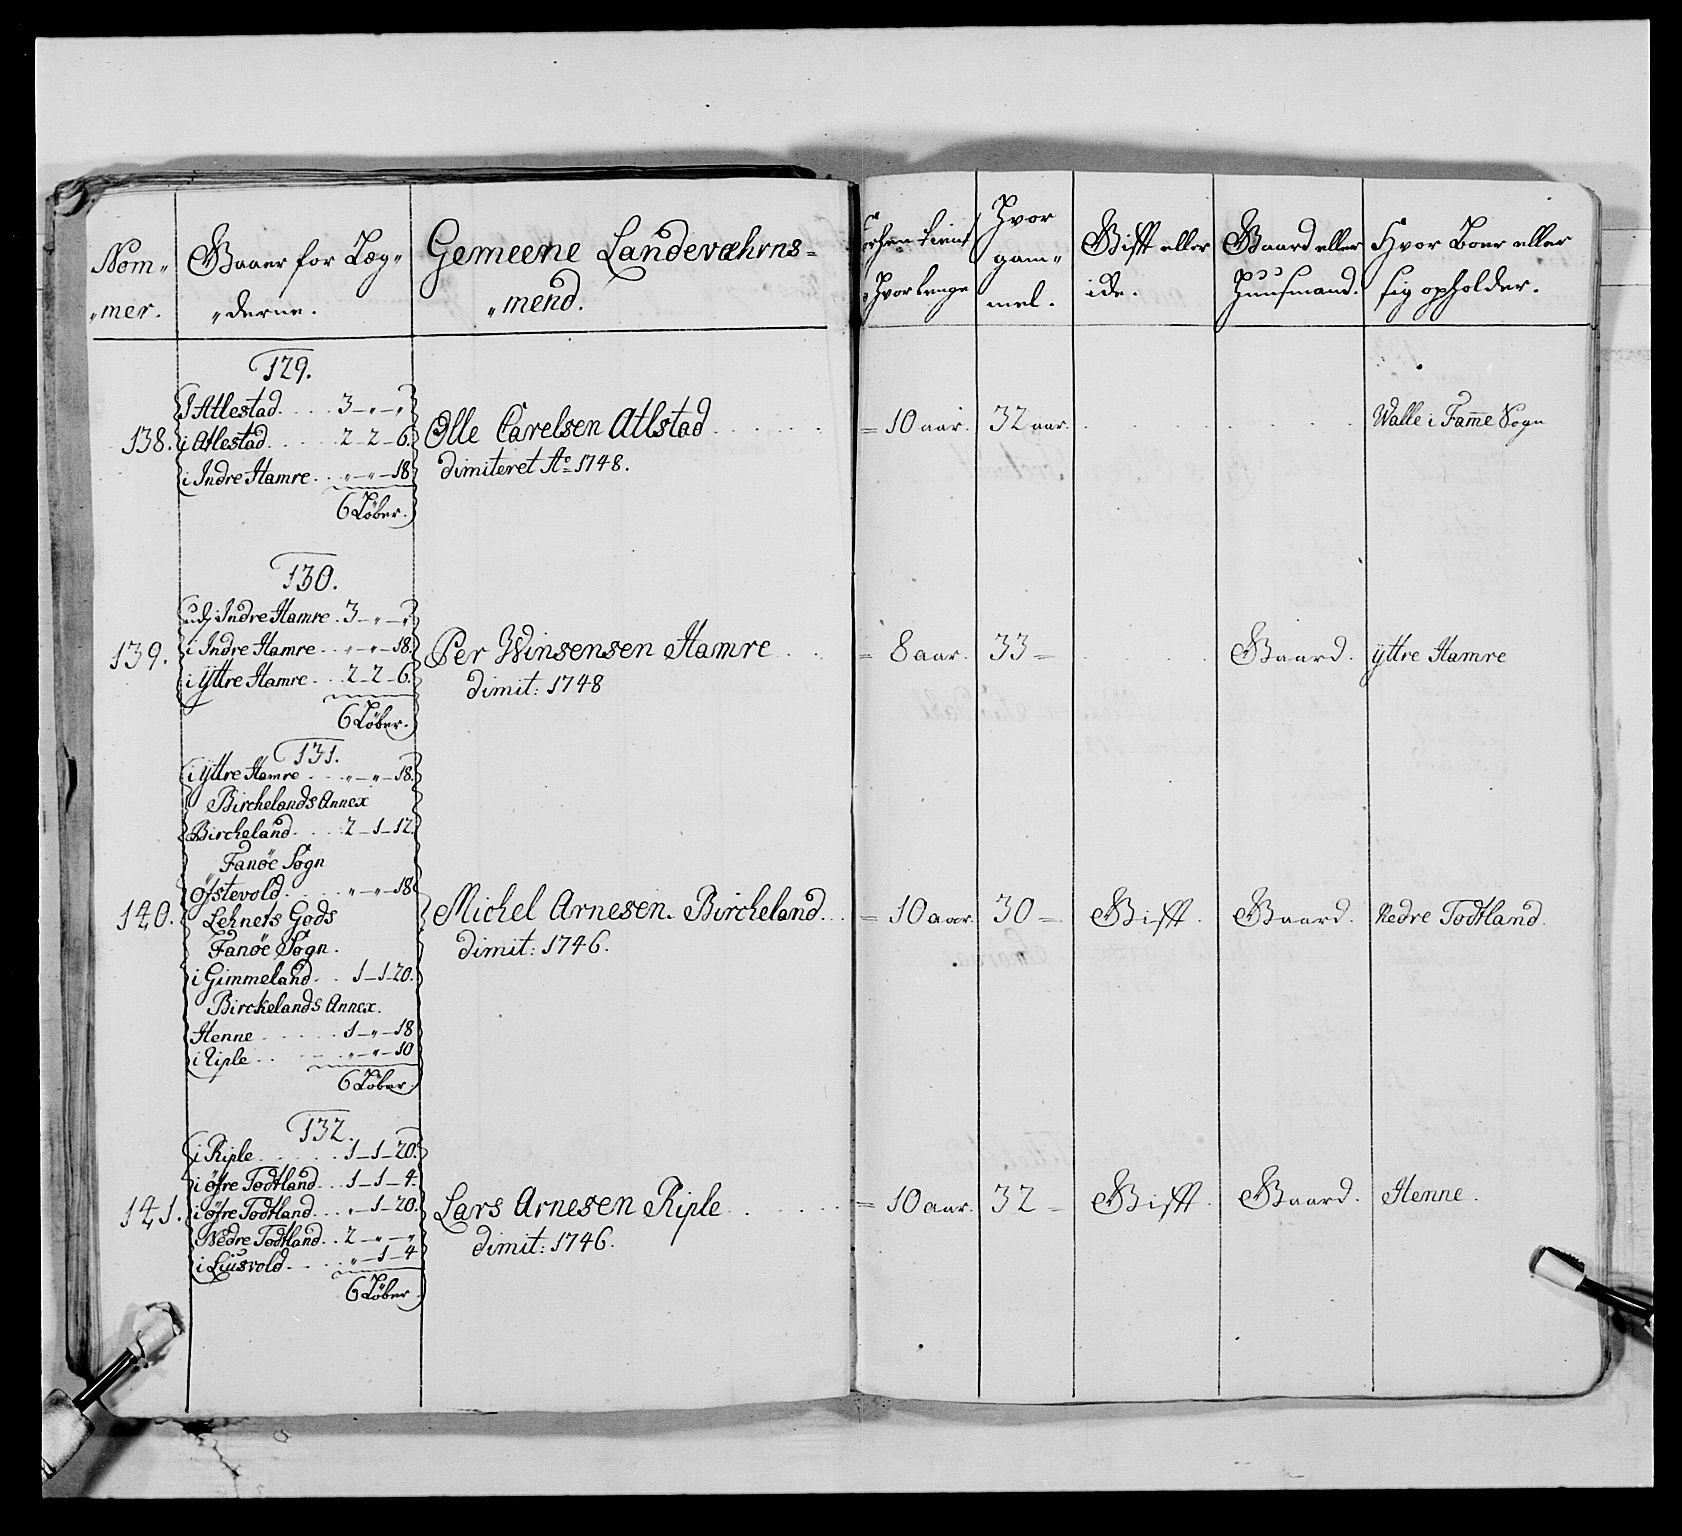 Nom„ „mer.
Gaaer for Læg„ „derne.
Gemeene Landeværns= „mend.
Hvor lenge
Hvor gam„ mel.
Gifft eller ide.
Gaard eller Huusmand.
Hvor Boer eller sig opholder.
129.
i Atlestad. . . . . 3 – „ – „
138. i Atlestad. . . . . 2 – 2 – 6. Olle Carelsen Atlstad . . . . . . = 10 aar. 32 aar. . . . . . . . . Walle i Fam̄e Sogn
i Indre Hamre . . „ – „ – 18 dimiteret Ao 1748.
6 Løber.
130.
udj Indre Hamre . 3 – „ – „
139. i Indre Hamre . . . „ – „ – 18. Per Winsensen Hamre . . . = 8 aar. 33 – . . . . . Gaard. ÿttre Hamre
i ÿttre Hamre . . . 2 – 2 – 6. dimit: 1748
6 Løber.
131.
i ÿttre Hamre . . . „ – „ – 18.
Birchelands Annex
Bircheland. . . . . 2 – 1 – 12.
Fanöe Sogn
öfstevold. . . . . „ – „ – 18
140. Lehnets Gods Michel Arnesen. Bircheland. . . = 10 aar. 30 – Gifft. Gaard. Nedre Todtland.
Fanöe Sogn. dimit: 1746.
i Gimmeland. . . 1 – 1 – 20.
Birckelands Annex.
Henne . . . . . . 1 – „ – 18
i Riple . . . . . „ – „ – 10
6 Løber.
132.
i Riple . . . . . . 1 – 1 – 20.
i öfre Todtland. . . 1 – 1 – 4.
141. i öfre Todtland. . . „ – 1 – 20. Lars Arnesen Riple . . . . . . = 10 aar. 32 – Gifft. Gaard. Henne.
Nedre Todtland. . 2 – „ – „ dimit: 1746.
i Liusvold. . . . . „ – 1 – 4
6 Løber.